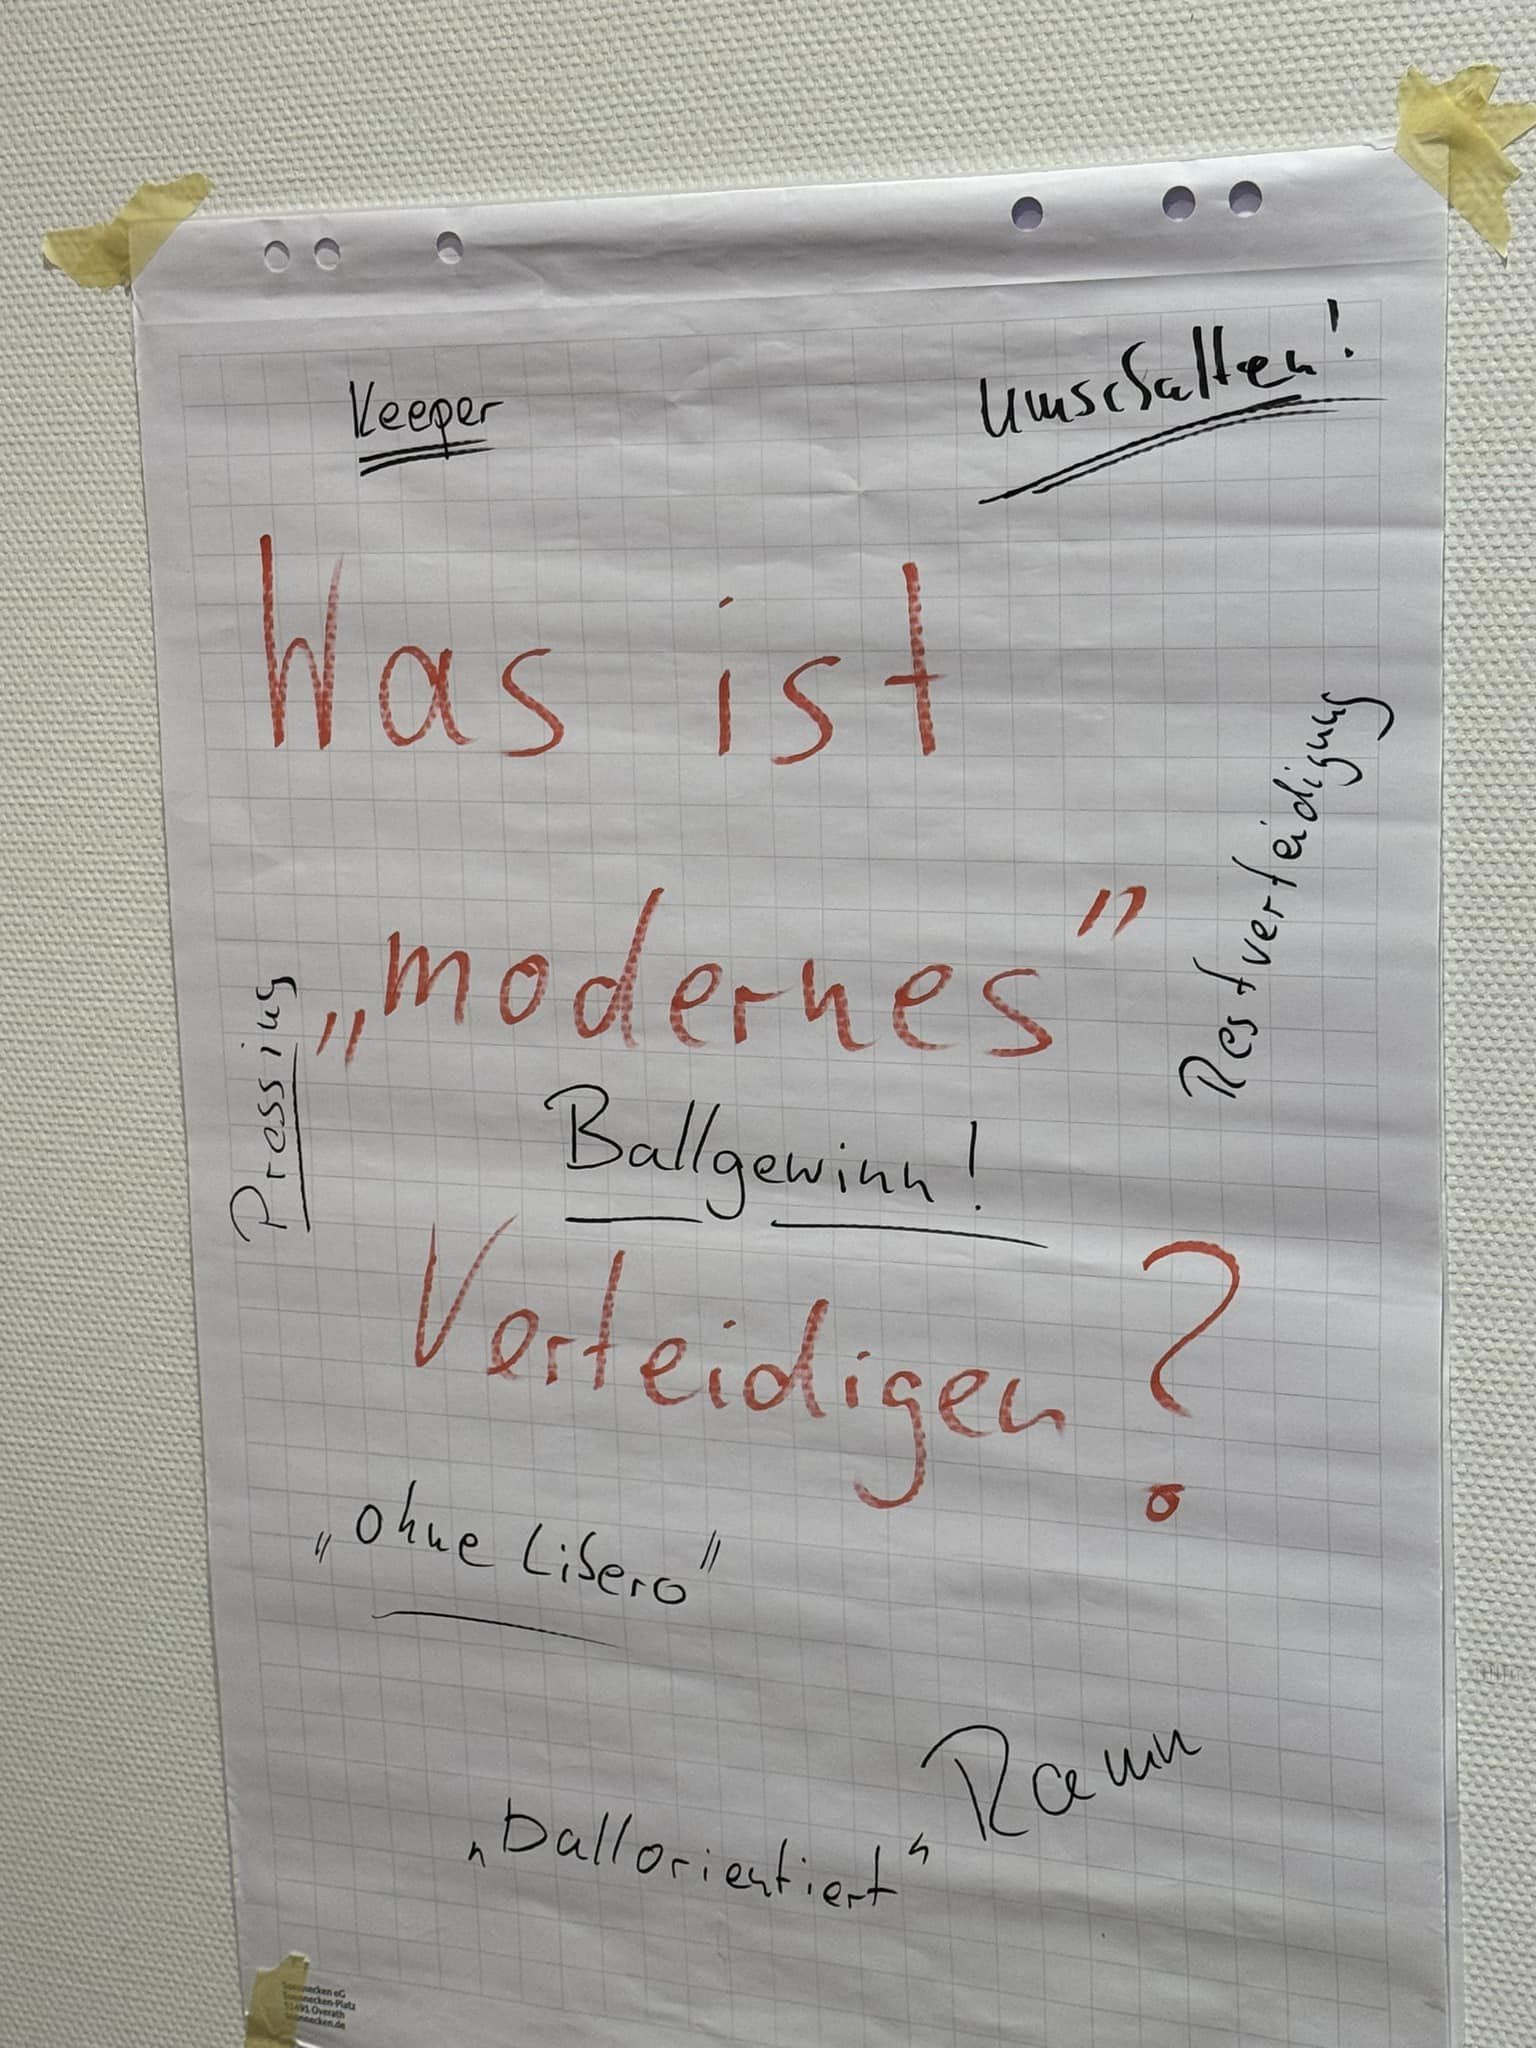 Keeper
Umschalten!
Was ist
„modernes"
Restverteidigung
Pressing
Ballgewinn!
Verteidigen?
„ohne Libero"
Raum
„ballorientiert"
Soennecken eG
Soennecken-Platz
51491 Overath
soennecken.de